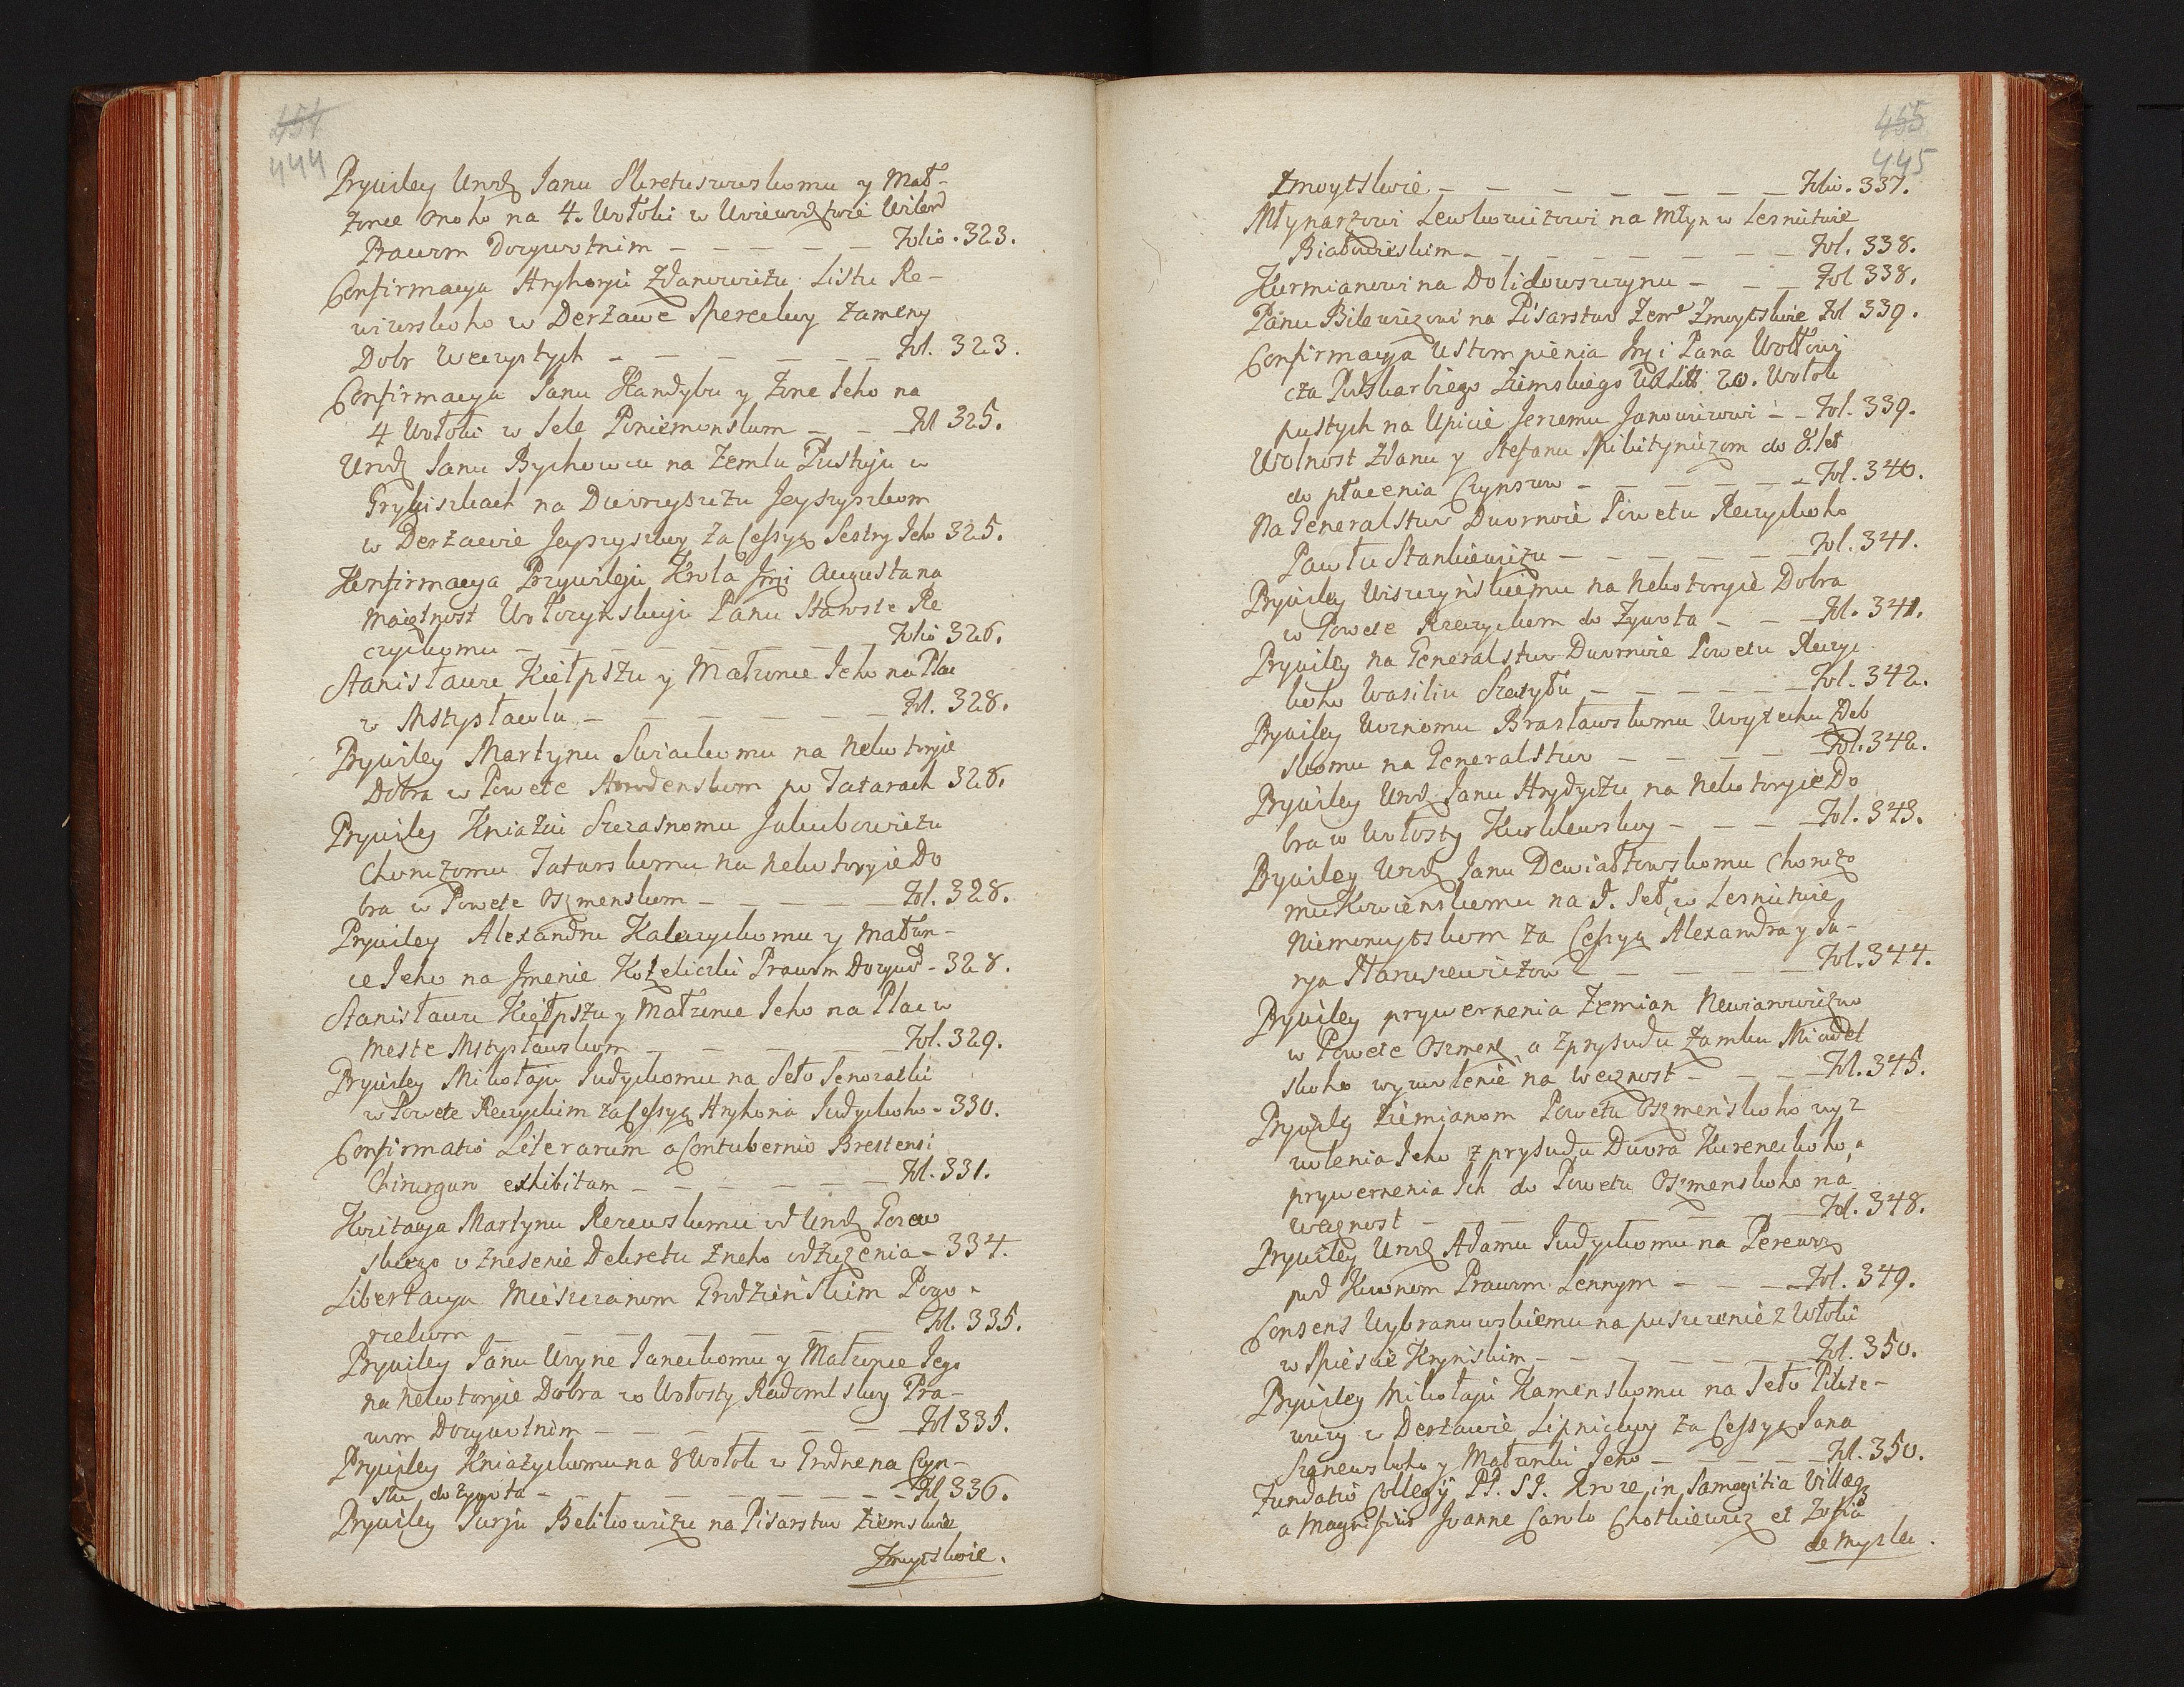 454
444
Prywiley Urodz Janu Skretuszewskomu y Mał-
żonce onoho na 4. Wołoki w Woiewodztwie Wilend
Prawom Dozywotnim — — — — — Folio. 323.
Confirmacya Hryhoryu Zdanowiczu Listu Re-
wizorskoho w Derżawe Sperckoy zameny
Dobr Weczystych — — — — — — Fol. 323.
Confirmacya Janu Handybu y Zone Jeho na
4 Wołoki w Sele Poniemonskom — — Fol 325.
Urodz Janu Bychowcu na Zemlu Pustuju w
Grybiszkach na Dworyszczu Jeyszyszkom
w Derżawie Jeyszyszkoy za Cessyą Sestry Jeho 325.
Konfirmacya Przywileju Krola Jmci Augusta na
Maiętnost Wołozynskuju Panu Staroste Re
czyckomu — — — — — — — Folio 326.
Stanisławu Kiełpszu y Małzonce Jeho na Plac
w Mstysławlu — — — — — — Fol. 328.
Prywiley Martynu Swiackomu na nekotoryie
Dobra w Powete Horodenskom po Tatarach 328.
Prywiley Kniaziu Szczasnomu Jakubowiczu
Chorużomu Tatarskomu na nekotoryie Do
bra w Powete Oszmenskom — — — — — Fol. 328.
Prywiley Alexandru Kaleczyckomu y Małżon-
ce Jeho na Jmenie Kozeliczki Prawom Dozywo - 328.
Stanisławu Kiełpszu y Małzonce Jeho na Plac w
Meste Mstysławskom — — — — — Fol. 329.
Prywiley Mikołaju Judyckomu na Seło Senozatki
w Powete Reczyckim za Cessyą Hryhoria Judyckoho - 330.
Confirmatio Literarum a Contubernio Brestensi
Chirurgorum exhibitam — — — — — — Fol. 331.
Kwitacya Martynu Rezewskomu od Urodz Goraw
skiego o znesenie Dekretu z neho odżyczenia - 334.
Libertacya Mieszczanom Grodzieńskim Pogo-
rzelcom — — — — — — — — Fol. 335.
Prywiley Janu Woyne Janeckomu y Małzonce Jego
na nekotoryie Dobra w Wołosty Radomlskoy Pra-
wom Dozywotnim — — — — — — Fol 335.
Prywiley Kniażyckomu na 8 Wołok w Grodne na Czyn-
szu do żywota — — — — — — — Fol 336.
Prywiley Jurju Belikowiczu na Pisarstwo Ziemskoie
Żmoytskoie.
455
445
Żmoytskoie — — — — — — — Folio. 337.
Młynarzowi Lewkowiczowi na Młyn w Lesnictwie
Białowieskim — — — — — — — Fol. 338.
Kurmianowi na Dolidowszczynu — — — Fol 338.
Panu Bilewiczowi na Pisarstwo Zem Zmoytskoie Fol 339.
Confirmacya Ustompienia Jmci Pana Wołłowi
cza Podskarbiego Ziemskiego WXLitt 20. Wołok
pustych na Upicie Jerzemu Janowiczowi — - Fol. 339.
Wolnost Zdanu y Stefanu Spikityniczom do 8. let
do płacenia Czynszow — — — — — — Fol. 340.
Na Generalstwo Dwornoie Powetu Reczyckoho
Pawłu Stankiewiczu — — — — — — Fol. 341.
Prywiley Wiszczyńskiemu na nekotoryie Dobra
w Powete Rzeczyckom do Zywota — — — Fol. 341.
Prywiley na Generalstwo Dwornoie Powetu Reczyc
koho Wasiliu Szczytu — — — — — — Fol. 342.
Prywiley Woznomu Brasławskomu Woytechu Deb
skomu na Generalstwo — — — — Fol. 342.
Prywiley Urodz Janu Hrydyczu na nekotoryie Do
bra w Wołosty Kurklewskoy — — — — Fol. 343.
Prywiley Urodz Janu Dewiałtowskomu Choruzo
mu Kowienskomu na J. Seł, w Lesnictwie
Niemonoytskom za Cessyą Alexandra y Ju-
rya Staruszewiczow — — — — — — Fol. 344.
Prywiley prywernenia Zemian Newiarowiczow
w Powete Oszmenl, a z prysudu Zamku Miadel
skoho wyzwolenie na wecznost — — — — Fol. 345.
Prywiley Ziemianom Powetu Oszmeńskoho wyz
wolenia Jeho z prysudu Dwora Kureneckoho, a
prywernenia Jch do Powetu Oszmenskoho na
wecznost — — — — — — — — Fol. 348.
Prywiley Urodz Adamu Judyckomu na Perewoz
pod Kownom Prawom Lennym — — — — Fol. 349.
Consens Wybranowskiemu na puszczenie 2 Włoki
w Spiesie Krynskim — — — — — — Fol. 350.
Prywiley Mikołaju Kamenskomu na Seło Pilite-
wczy w Derżawie Lipnickoy za Cessyą Jana
Szanewskoho y Małżonki Jeho — — — — Fol. 350.
Fundatio Collegij PP. SJ. Kroze, in Samogitia Villag
a Magnifico Joanne Carolo Chotkiewicz et Zofia
de Myslec.